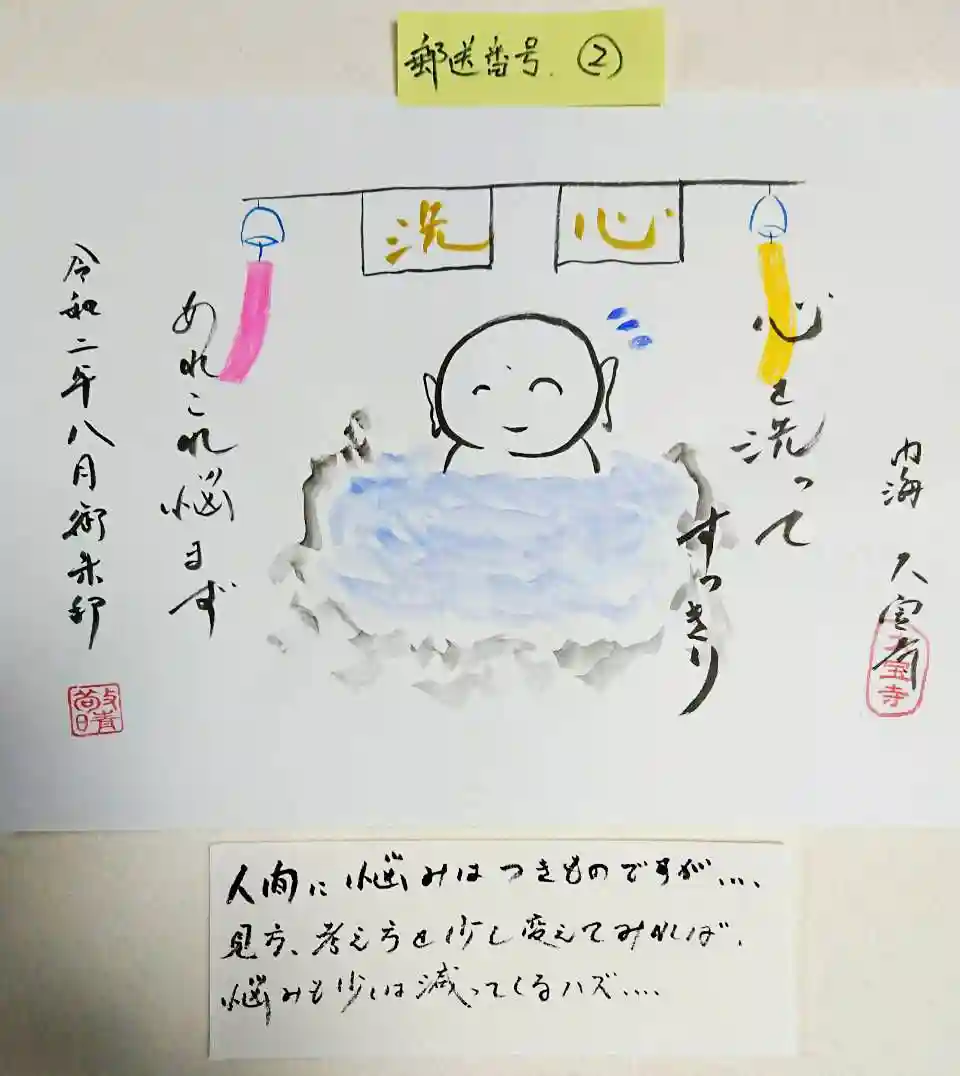 郵送番号. ②
心 洗
内海 大宝寺
大宝寺
心を洗って
すっきり
あれこれ悩まず
令和二年八月御朱印
人間に悩みはつきものですが....
見方、考え方を少し変えてみれば、
悩みも少しは減ってくるハズ....